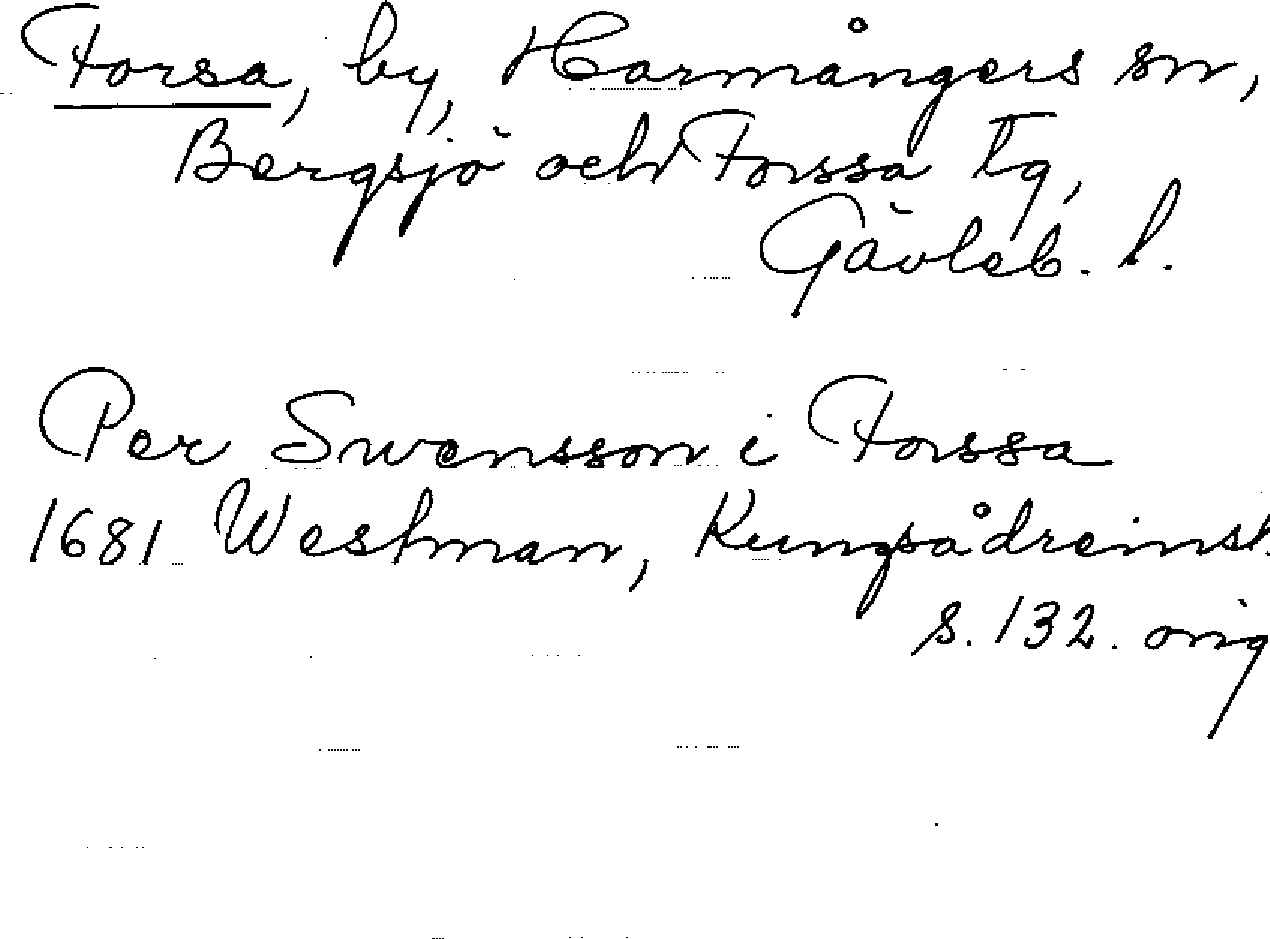 Forsa, by, Harmångers sn,
Bergsjö och Forssa tg,
Gävleb. l.
Per Swensson i Forssa
1681 Westman, Kungsådreinst.
s. 132. orig